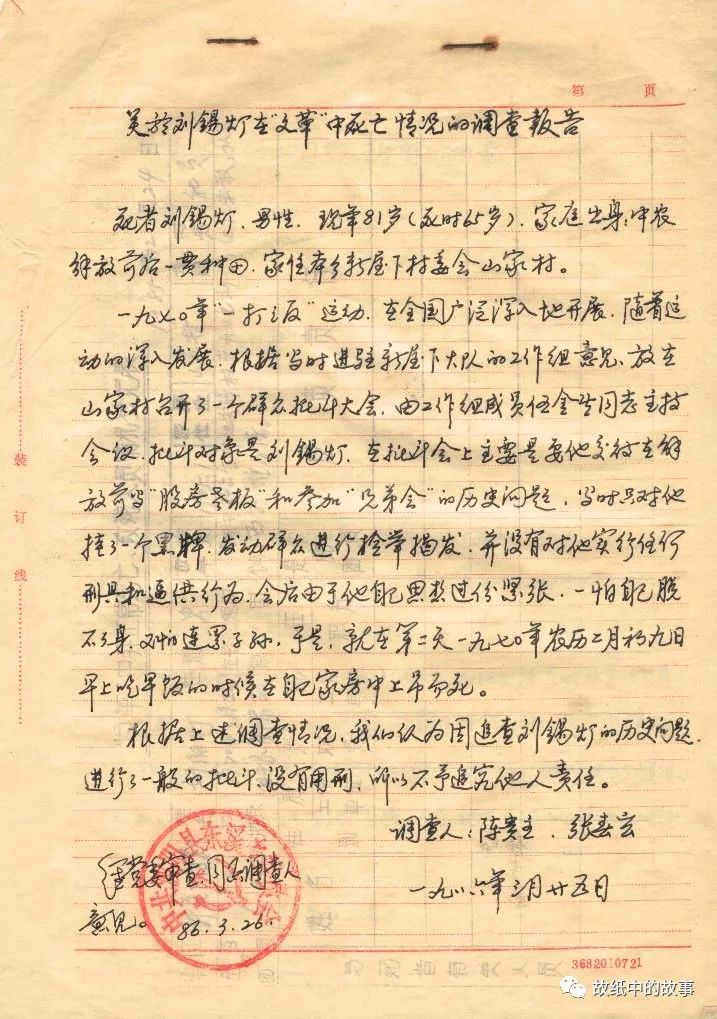 第 页
关于刘锡灯在“文革”中死亡情况的调查报告
死者刘锡灯、男性、现年81岁(死时65岁)、家庭出身:中农
解放前后一贯种田、家住本乡新屋下村委会山家村。
一九七0年“一打三反”运动、在全国广泛深入地开展、随着运
动的深入发展、根据当时进驻新屋下大队的工作组意见、放在
山家村召开了一个群众批斗大会、由工作组成员伍金生同志主持
会议、批斗对象是刘锡灯、在批斗会上主要是要他交待在解
放前当“股房老板”和参加“兄弟会”的历史问题、当时只对他
挂了一个黑牌、发动群众进行检举揭发、并没有对他实行任何
刑具和逼供行为、会后由于他自己思想过份紧张、一怕自己脱
不了身、又怕连累子孙、于是、就在第二天一九七0年农历二月初九日
早上吃早饭的时候在自己家房中上吊而死。
根据上述调查情况、我们认为因追查刘锡灯的历史问题、
进行了一般的批斗、没有用刑、所以不予追究他人责任。
调查人:陈贵主、张春云
经党委审查、同意调查人
意见。 86.3.26.
一九八六年三月廿五日
装
订
线
3682010721
故纸中的故事